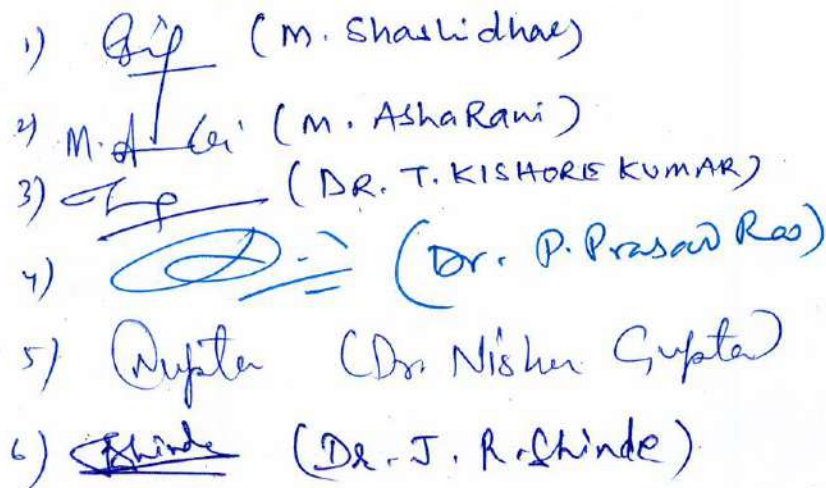 1) (M. Shashidhar)
2) M. A (M. AshaRani)
3) (DR. T. KISHORE KUMAR)
4) (Dr. P. Prasad Rao)
5) Gupta (Dr. Nisha Gupta)
6) Shinde (Dr. J. R. Shinde)